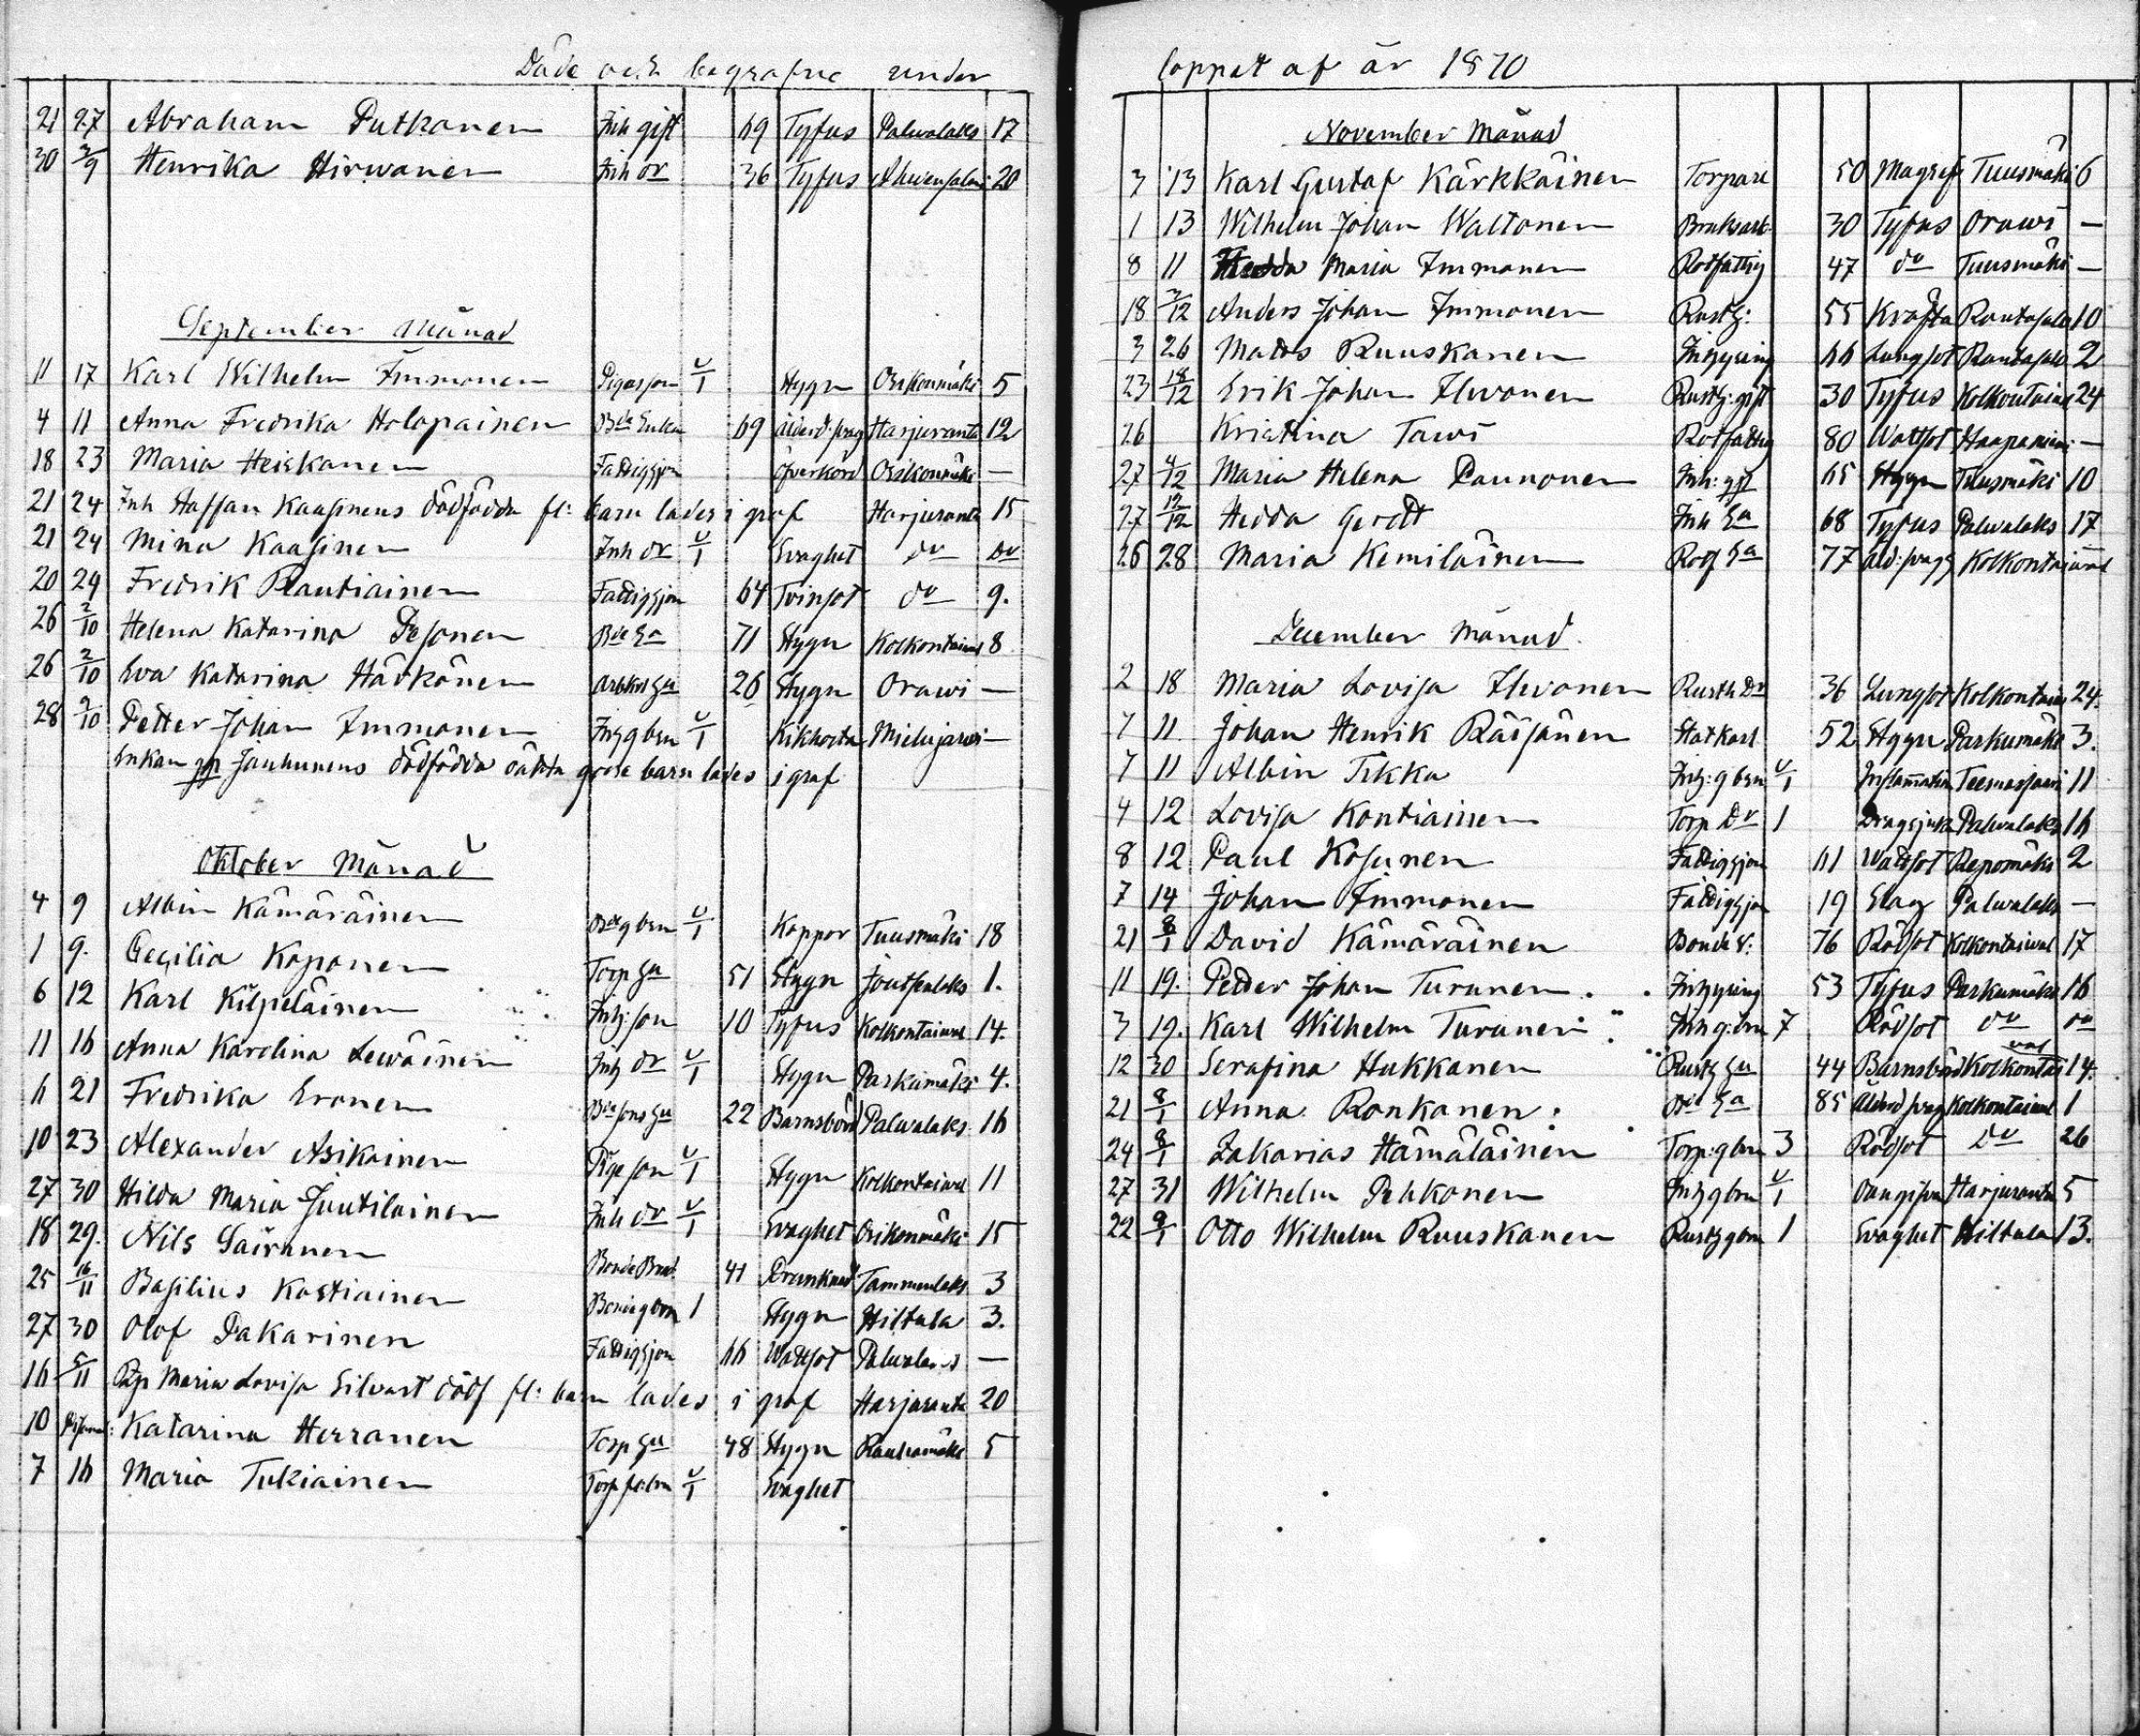 Döde och begrafne under
21 27 Abraham Putkonen Inh gift 69 Tyfus Palvalaks 17
30 2/9 Henrika Hirwonen Inh dr 36 Tyfus Ahvensalmi 20
September Månad
11 17 Karl Wilhelm Immonen Pigasson u/1 Hygn Osikonmäki 5
4 11 Anna Fredrika Holopainen Bde Enka 69 ålderd: Harjuranta 12
18 23 Maria Heiskanen Fattighjon öfverkörd Osikonmäki —
21 24 Inh Staffan Kaasinens dödfödda fl: barn lades i graf Harjuranta 15
21 24 Mina Kaasinen Inh dr u/1 Svaghet do do
20 29 Fredrik Rautiainen Fattighjon 64 Tvinsot do 9.
26 2/10 Helena Katarina Pesonen Bde Ea 71 Hygn Kolkontaival 8
26 2/10 Eva Katarina Härkönen Arbk hu 26 Hygn Orawi —
28 9/10 Petter Johan Immonen Inh g brn u/1 Kikhosta Mielujärvi —
Enkan Jauhunens dödfödda oäkta gosse barn lades i graf
Oktober Månad
4 9 Albin Kämäräinen Bde g brn u/1 Koppor Tuusmäki 18
1 9. Cecilia Koponen Torp hu 51 Hygn Joutsenlaks 1.
6 12 Karl Kilpeläinen Inh: son 10 Tyfus Kolkontaival 14.
11 16 Anna Karolina Lewäinen Inh dr u/1 Hygn Parkumäki 4.
6 21 Fredrika Eronen Bde sons hu 22 Barnsbörd Palvalaks 16
10 23 Alexander Asikainen Pige son u/1 Hygn Kolkontaival 11
27 30 Hilda Maria Juutilainen Inh dr u/1 Svaghet Osikonmäki 15
18 29. Nils Sairanen Bonde Brod. 41 Drunknad Tammenlaks 3
25 16/11 Basilius Kostiainen Bonde g brn 1 Hygn Hiltula 3.
27 30 Olof Pakarinen Fattighjon 66 Wattsot Palvalaks —
16 5/11 Maria Lovisa Silvast dödf fl: barn lades i graf Harjuranta 20
10 Katarina Herranen Torp hu 48 Hygn Rauhamäki 5
7 16 Maria Tukiainen Torp fl: brn u/1 Svaghet
loppet af år 1870
November Månad
3 13 Karl Gustaf Kärkkäinen Torpare 50 Magref Tuusmäki 6
1 13 Wilhelm Johan Waltonen Bruksarb. 30 Tyfus Orawi —
8 11 Hedda Maria Immonen Rotfattig 47 do Tuusmäki —
18 2/12 Anders Johan Immonen Rusth: 55 Kräfta Rantasalo 10
3 26 Mats Ruuskanen Inhysing 66 Lungsot Rantasalo 2
23 18/12 Erik Johan Ihvonen Rusth: gift 30 Tyfus Kolkontaival 24
26 Kristina Tawi Rotfattig 80 Wattsot Haapaniemi —
27 4/12 Maria Helena Paunonen Inh: gft 65 Hygn Tuusmäki 10
27 12/12 Hedda Gerdt Inh Ea 68 Tyfus Palvalaks 17
26 28 Maria Kemiläinen Rotf Ea 77 Kolkontaival
December Månad.
2 18 Maria Lovisa Ihvonen Rusth Dr 36 Lungsot Kolkontaival 24.
7 11 Johan Henrik Räisänen Statkarl 52 Hygn Parkumäki 3.
7 11 Albin Tikka Inh: g brn u/1 Inflammation Teemasjärvi 11
4 12 Lovisa Kontiainen Torp Dr 1 Dragsjuka Palvalaks 16
8 12 Paul Kosunen Fattighjon 61 Wattsot Repomäki 2
7 14 Johan Immonen Fattighjon 19 Slag Palvalaks —
21 8/1 David Kämäräinen Bonde 76 Rödsot Kolkontaival 17
11 19. Petter Johan Turunen Inhysing 53 Tyfus Parkumäki 16
3 19. Karl Wilhelm Turunen Inh g: brn 7 Rödsot do do
12 30 Serafina Hukkanen Rusth hu 44 Barnsbörd Kolkontaival 14.
21 8/1 Anna Ronkanen Bde Ea 85 Ålderd Kolkontaival 1
24 8/1 Zakarias Hämäläinen Torp: g brn 3 Rödsot Do 26
27 31 Wilhelm Pehkonen Inh g brn u/1 Harjuranta 5
22 9/1 Otto Wilhelm Ruuskanen Rusth g brn 1 Svaghet Hiltula 13.